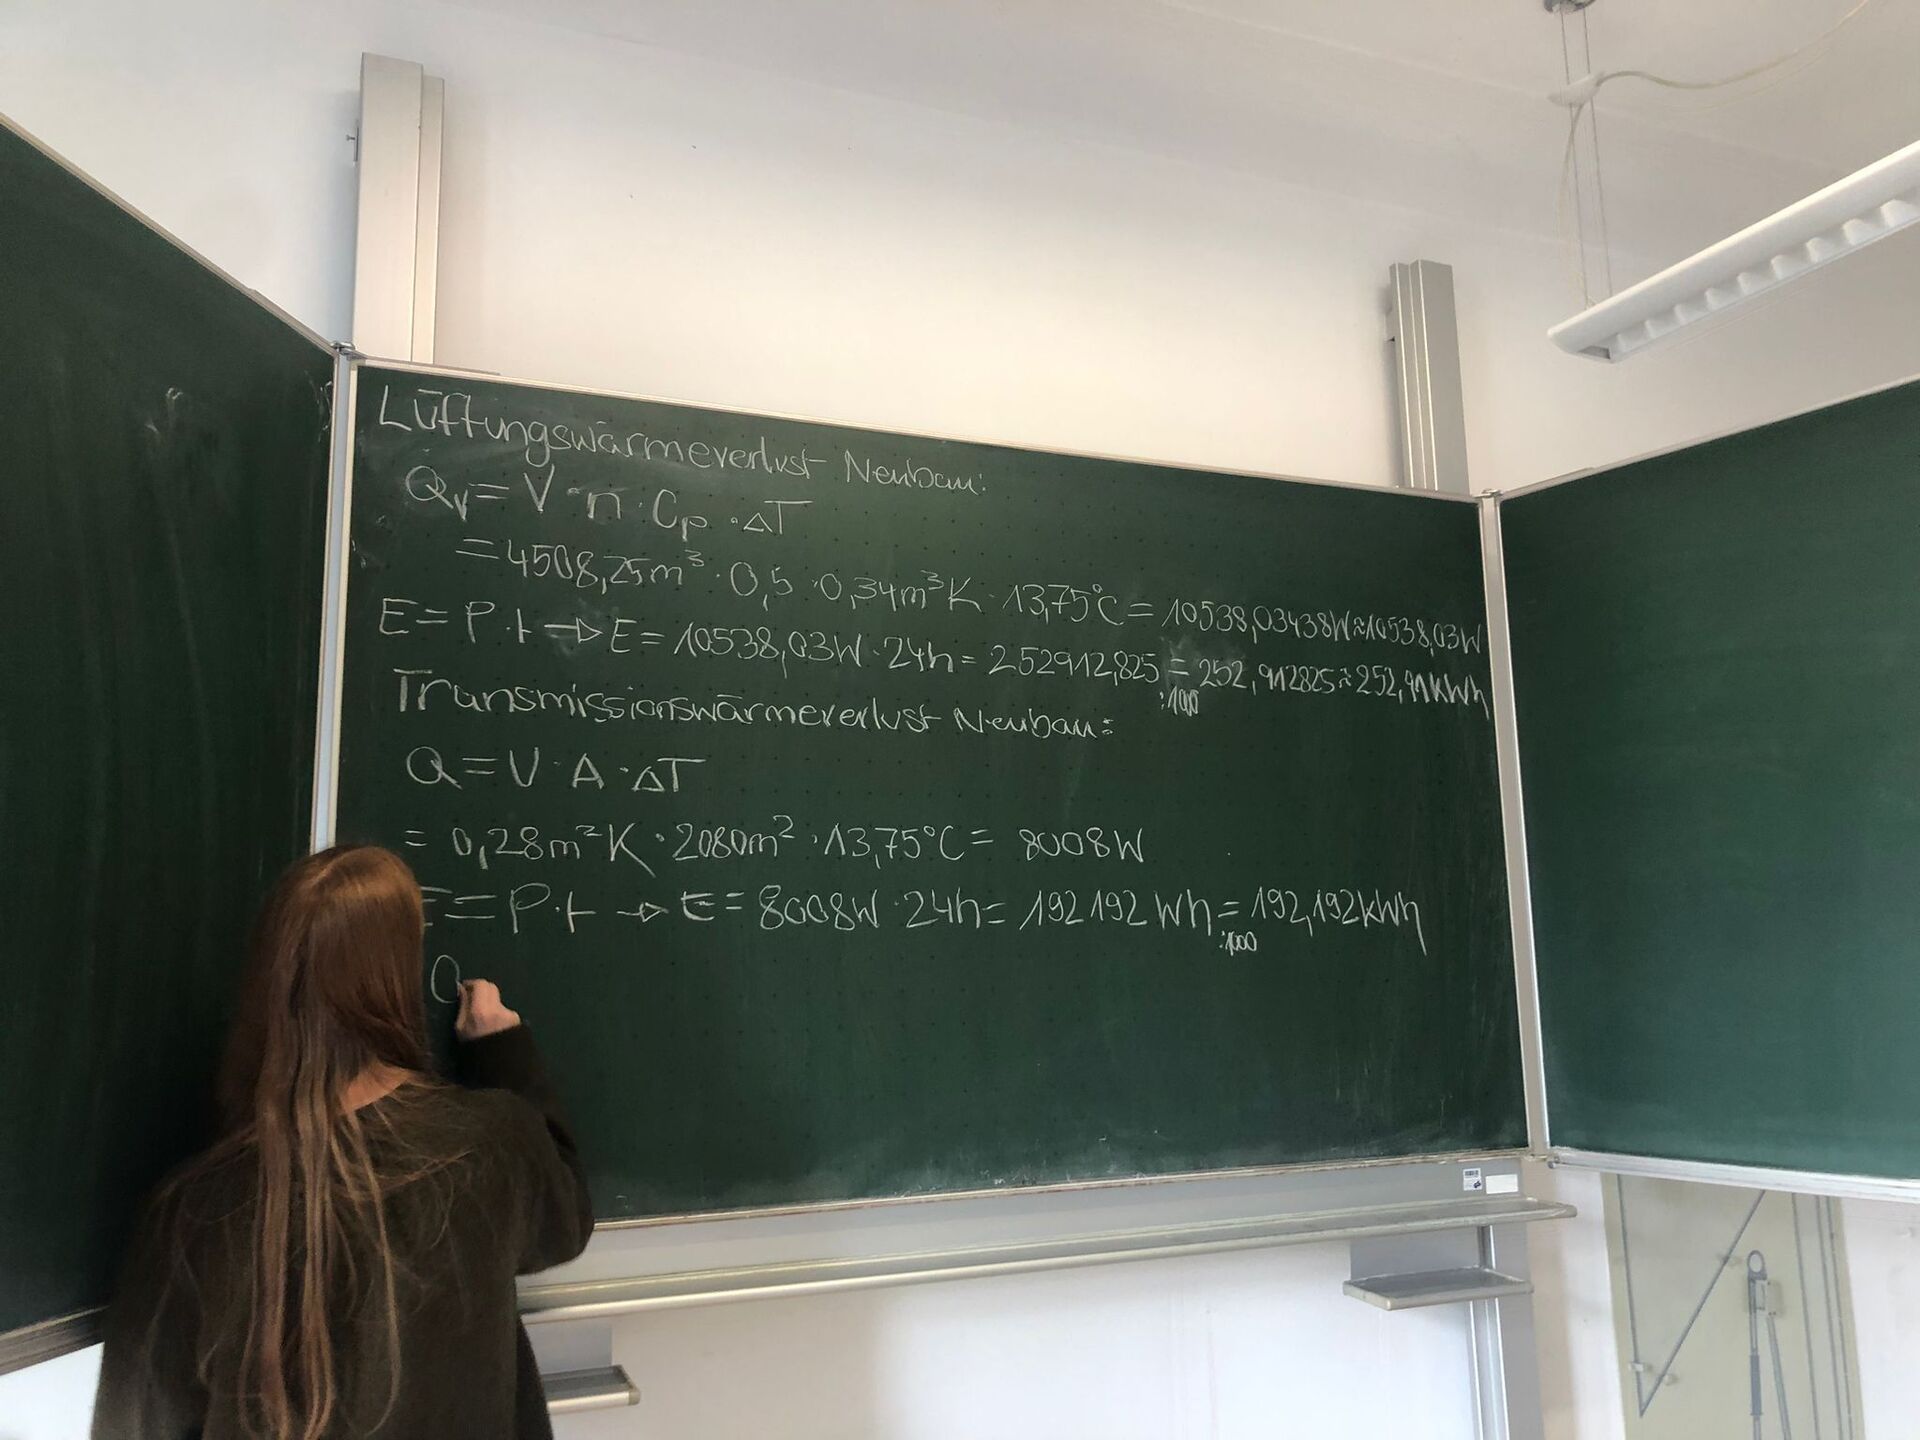 Lüftungswärmeverlust Neubau:
Qv = V · n · Cp · ΔT
= 4508,25m³ · 0,5 · 0,34m³K · 13,75°C = 10538,03438W ≈ 10538,03W
E = P·t → E = 10538,03W · 24h = 252912,825 = 252,912825 ≈ 252,91kWh
:1000
Transmissionswärmeverlust Neubau:
Q = U · A · ΔT
= 0,28m²K · 2080m² · 13,75°C = 8008W
E = P·t → E = 8008W · 24h = 192192Wh = 192,192kWh
:1000